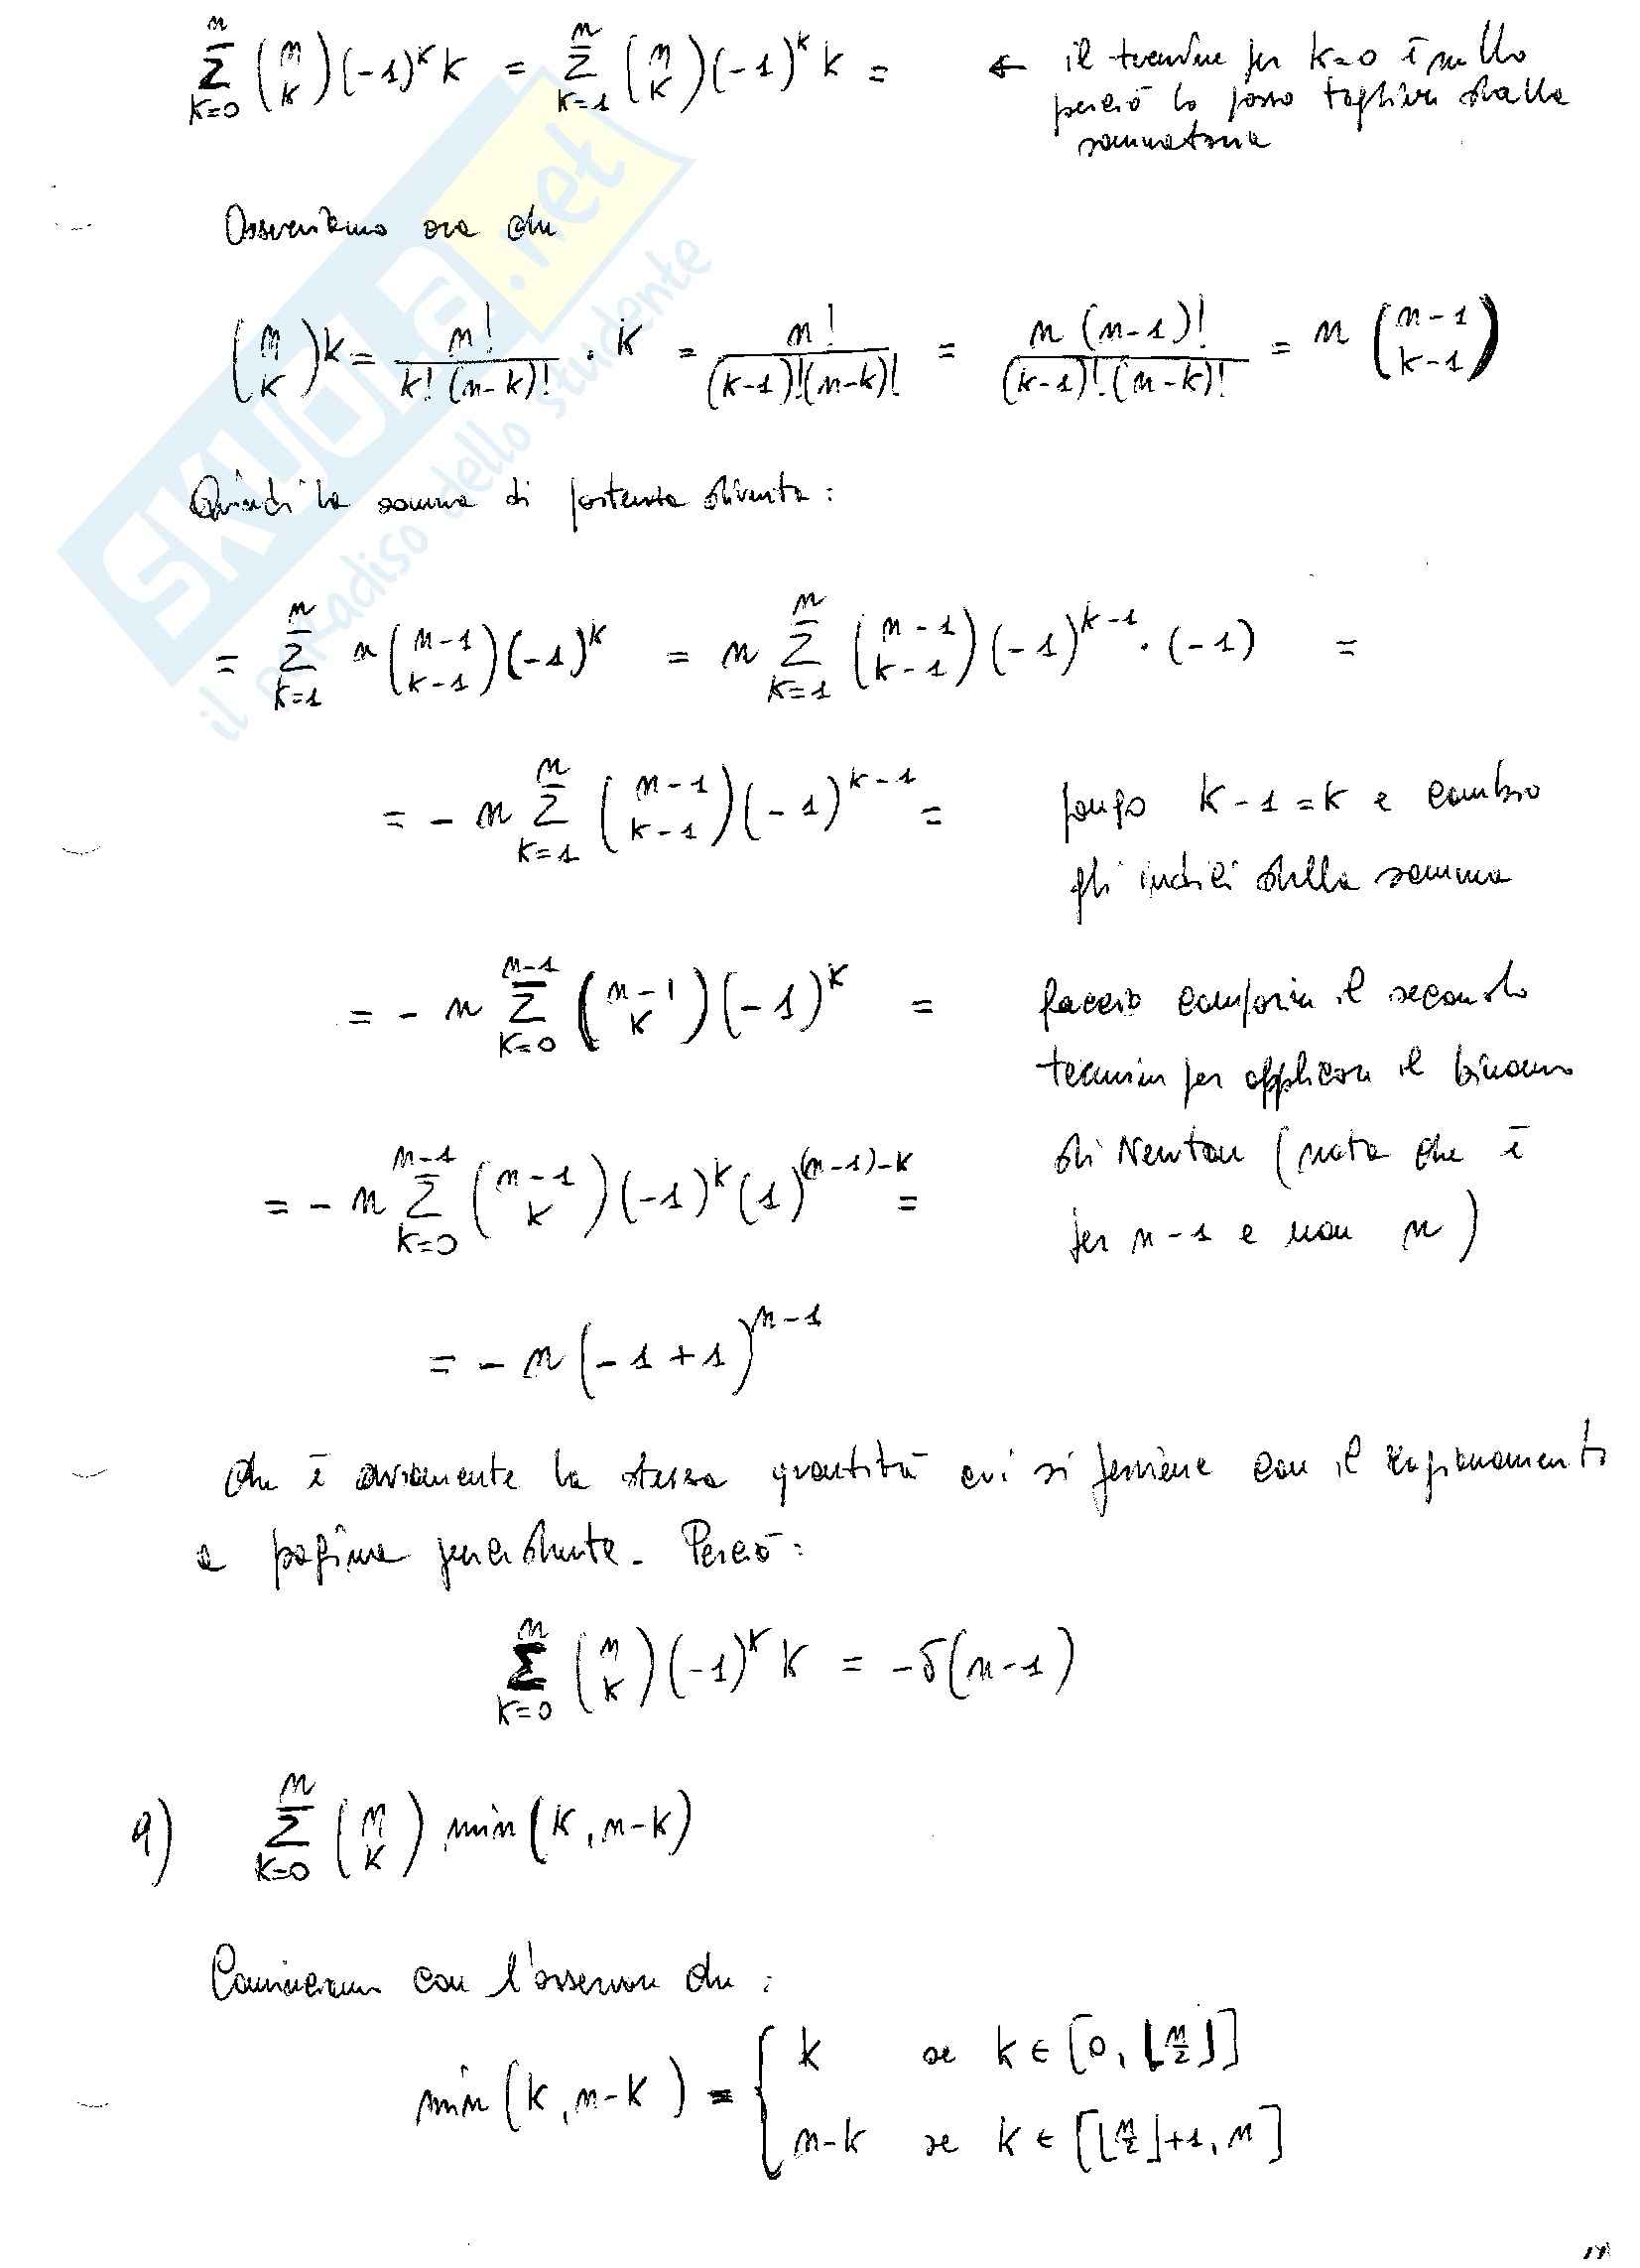 $\sum_{k=0}^{n} \binom{n}{k} (-1)^k k = \sum_{k=1}^{n} \binom{n}{k} (-1)^k k =$ ← il termine per k=0 è nullo
perciò lo posso togliere dalla
sommatoria
Osserviamo ora che
$\binom{n}{k} k = \frac{n!}{k!(n-k)!} \cdot k = \frac{n!}{(k-1)!(n-k)!} = \frac{n(n-1)!}{(k-1)!(n-k)!} = n \binom{n-1}{k-1}$
Quindi la somma di partenza diventa:
$= \sum_{k=1}^{n} n \binom{n-1}{k-1} (-1)^k = n \sum_{k=1}^{n} \binom{n-1}{k-1} (-1)^{k-1} \cdot (-1) =$
$= -n \sum_{k=1}^{n} \binom{n-1}{k-1} (-1)^{k-1} =$ pongo k-1=k e cambio
gli indici della somma
$= -n \sum_{k=0}^{n-1} \binom{n-1}{k} (-1)^k =$ faccio comparire il secondo
termine per applicare il binomio
$= -n \sum_{k=0}^{n-1} \binom{n-1}{k} (-1)^k (1)^{(n-1)-k} =$ di Newton (nota che è
per n-1 e non n)
$= -n(-1+1)^{n-1}$
che è ovviamente la stessa quantità cui si perviene con il ragionamento
a pagina precedente. Perciò:
$\sum_{k=0}^{n} \binom{n}{k} (-1)^k k = -\delta(n-1)$
9) $\sum_{k=0}^{n} \binom{n}{k} \min(k, n-k)$
Cominciamo con l'osservare che:
$\min(k, n-k) = \begin{cases} k & \text{se } k \in [0, \lfloor \frac{n}{2} \rfloor] \\ n-k & \text{se } k \in [\lfloor \frac{n}{2} \rfloor + 1, n] \end{cases}$
SKUOLA.net
il paradiso dello studente